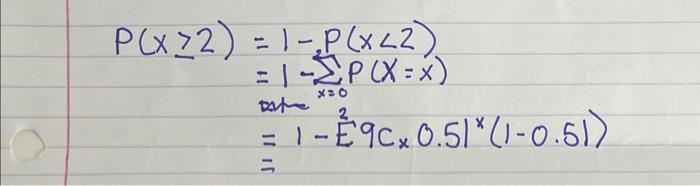 P(x≥2) = 1-P(x<2)
= 1-²Σₓ₌₀ P(X=x)
= 1-²E 9Cₓ 0.51ˣ(1-0.51)
=